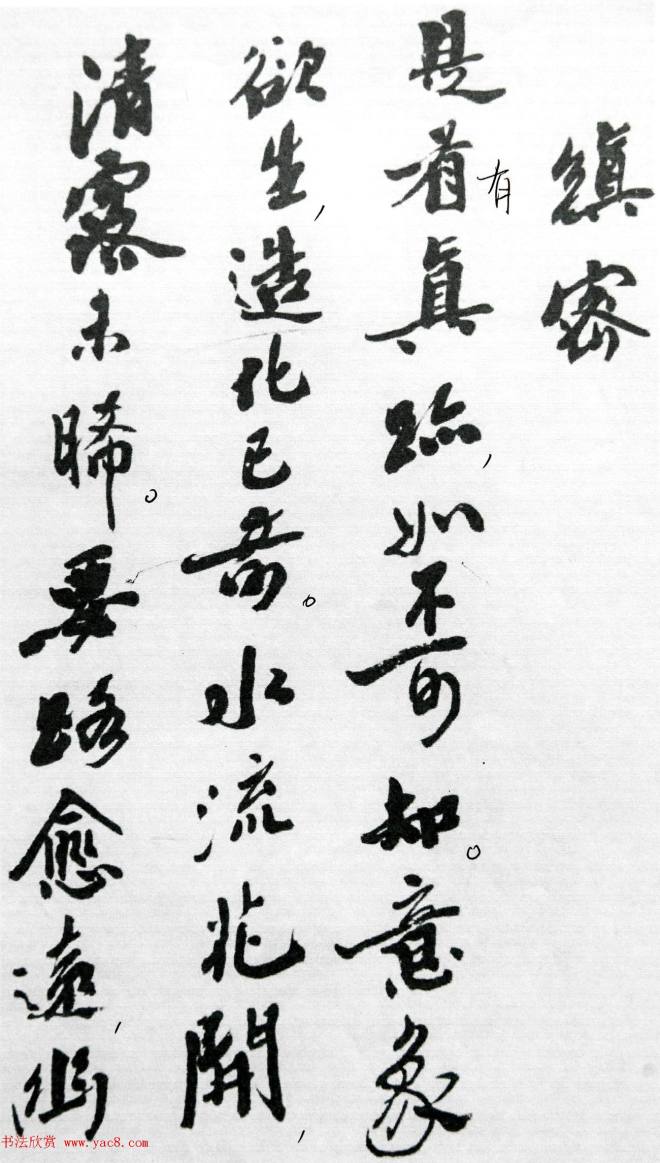 縝密
是者真跡，如不可知。意象
有
欲生，造化已奇。水流花開，
清露未晞。要路愈遠，幽
书法欣赏 www.yac8.com